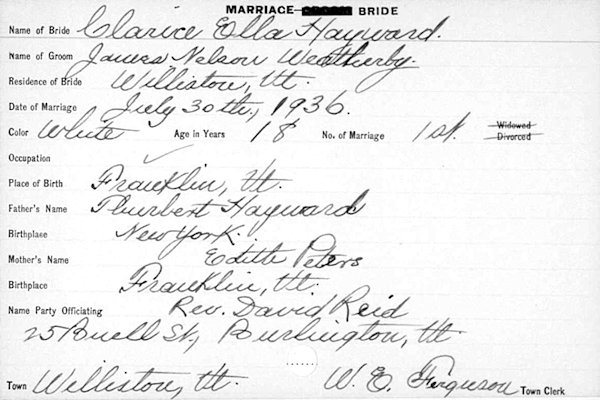 MARRIAGE—GROOM BRIDE
Name of Bride Clarice Ella Hayward.
Name of Groom James Nelson Weatherby.
Residence of Bride Williston, Vt.
Date of Marriage July 30th, 1936.
Color White Age in Years 18 No. of Marriage 1st. Widowed
Divorced
Occupation ✓
Place of Birth Franklin, Vt.
Father's Name Hayward
Birthplace New York.
Mother's Name Edith Peters
Birthplace Franklin, Vt.
Name Party Officiating Rev. David Reid
25 Buell St, Burlington, Vt.
Town Williston, Vt. W. E. Ferguson Town Clerk